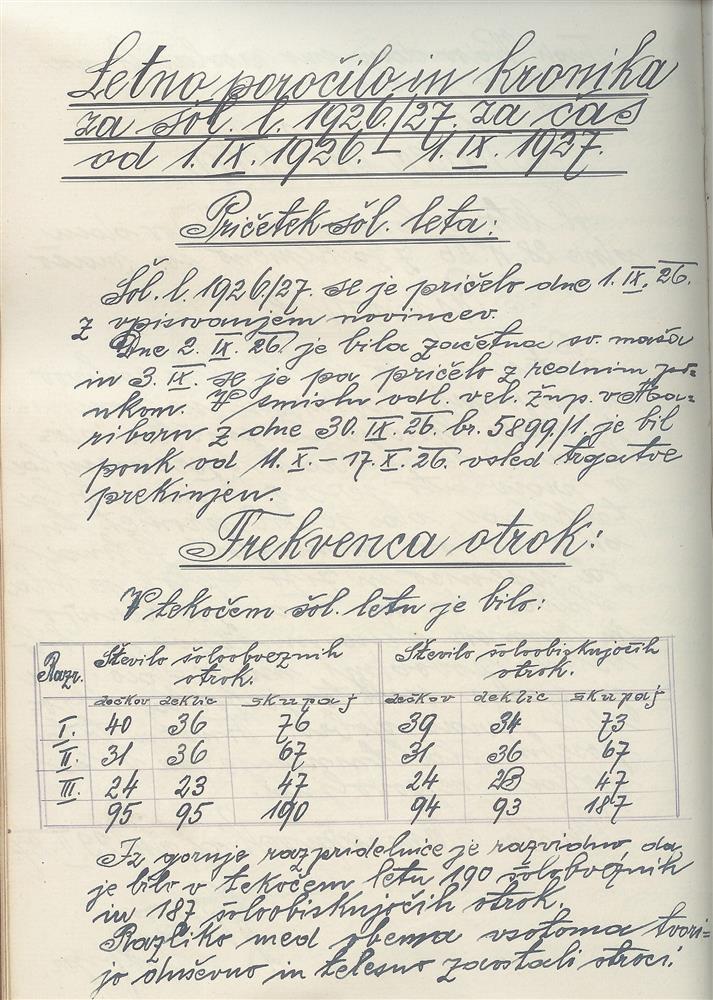 Letno poročilo in kronika
za šol. l. 1926./27. za čas
od 1. IX. 1926. – 1. IX. 1927.
Pričetek šol. leta:
Šol. l. 1926./27. se je pričelo dne 1. IX. 26.
z vpisovanjem novincev.
Dne 2. IX. 26. je bila začetna sv. maša
in 3. IX. se je pa pričelo z rednim po=
ukom. V smislu odl. vel. žup. v Ma=
riboru z dne 30. IX. 26. br. 5899/1. je bil
pouk od 11. X. – 17. X. 26. vsled trgatve
prekinjen.
Frekvenca otrok:
V tekočem šol. letu je bilo:
Razr. Število šoloobveznih otrok. Število šoloobiskujočih otrok.
dečkov deklic skupaj dečkov deklic skupaj
I. 40 36 76 39 34 73
II. 31 36 67 31 36 67
III. 24 23 47 24 23 47
95 95 190 94 93 187
Iz gornje razpridelnice je razvidno, da
je bilo v tekočem letu 190 šoloobveznih
in 187 šoloobiskujočih otrok.
Razliko med obema vsotoma tvori=
jo duševno in telesno zaostali otroci.